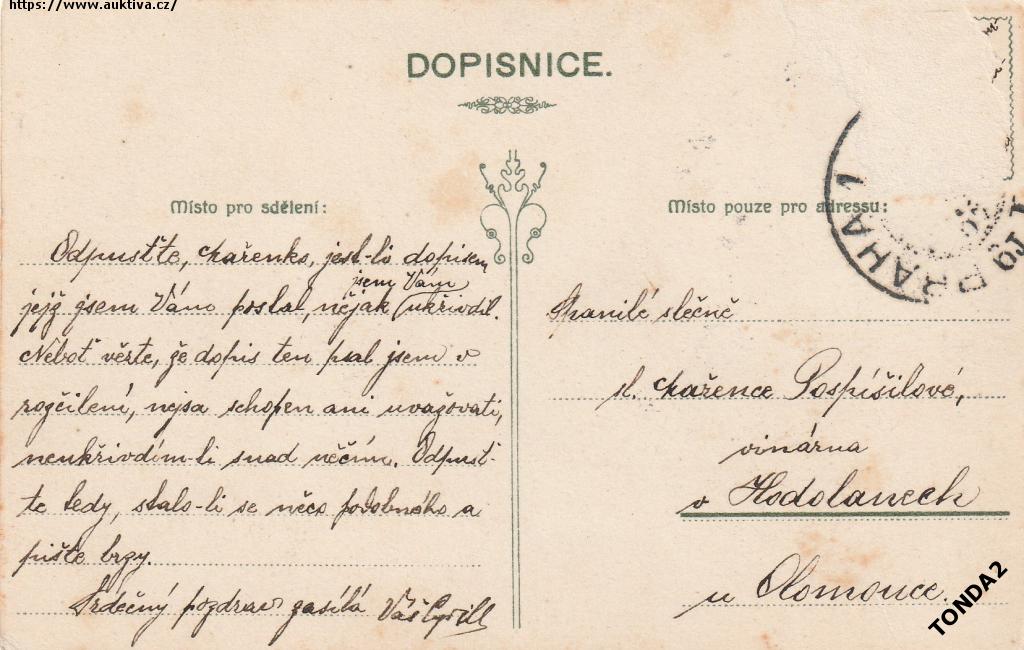 https://www.auktiva.cz/
DOPISNICE.
Místo pro sdělení:
Místo pouze pro adressu:
PRAHA 1
Odpusťte, Mařenko, jest-li dopisem
jejž jsem Vám poslal, nějak jsem Vám ukřivdil.
Neboť věřte, že dopis ten psal jsem v
rozčilení, nejsa schopen ani uvažovati,
neukřivdím-li snad něčím. Odpusť-
te tedy, stalo-li se něco podobného a
pište brzy.
Srdečný pozdrav zasílá Váš Cyrill
Spanilé slečně
sl. Mařence Pospíšilové,
vinárna
v Hodolanech
u Olomouce.
TONDA2